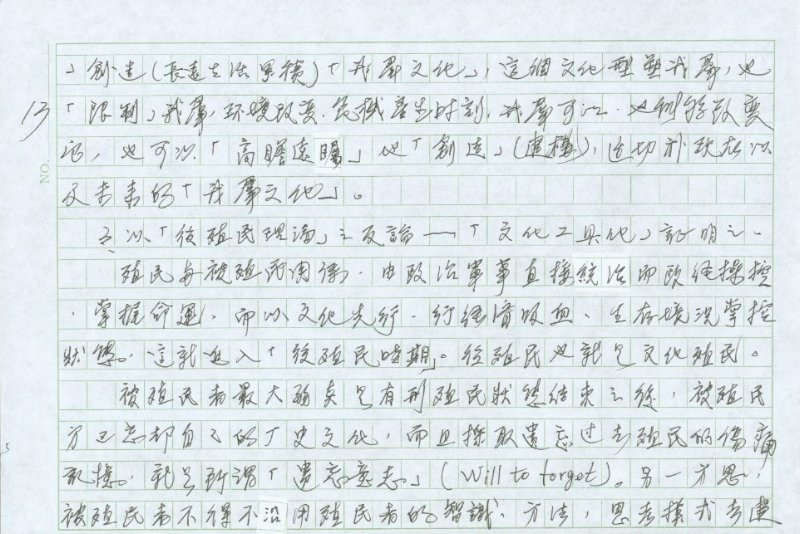 」創造(長遠生活累積)「我羣文化」,這個文化型塑我羣,也
13
「限制」我羣,環境改變、危機產生時刻,我羣可以、也
,也可以「高瞻遠矚」地「創造」(建構),適切於現在以
及未來的「我羣文化」。
以「後殖民理論」之反論——「文化工具化」証明之。
殖民與被殖民關係,由政治軍事直接統治而政經操控
、掌握命運,而以文化先行,行經濟吸血、生存境況掌控
狀態。這就進入「後殖民時期」。後殖民也就是文化殖民。
被殖民者最大弱點是在殖民狀態結束之後,被殖民
方已忘卻自己的歷史文化,而且採取遺忘過去殖民的傷痛
。就是所謂「遺忘意志」(Will to forget)。另一方
被殖民者不得不沿用殖民者的智識、方法,思考模式去建
NO.